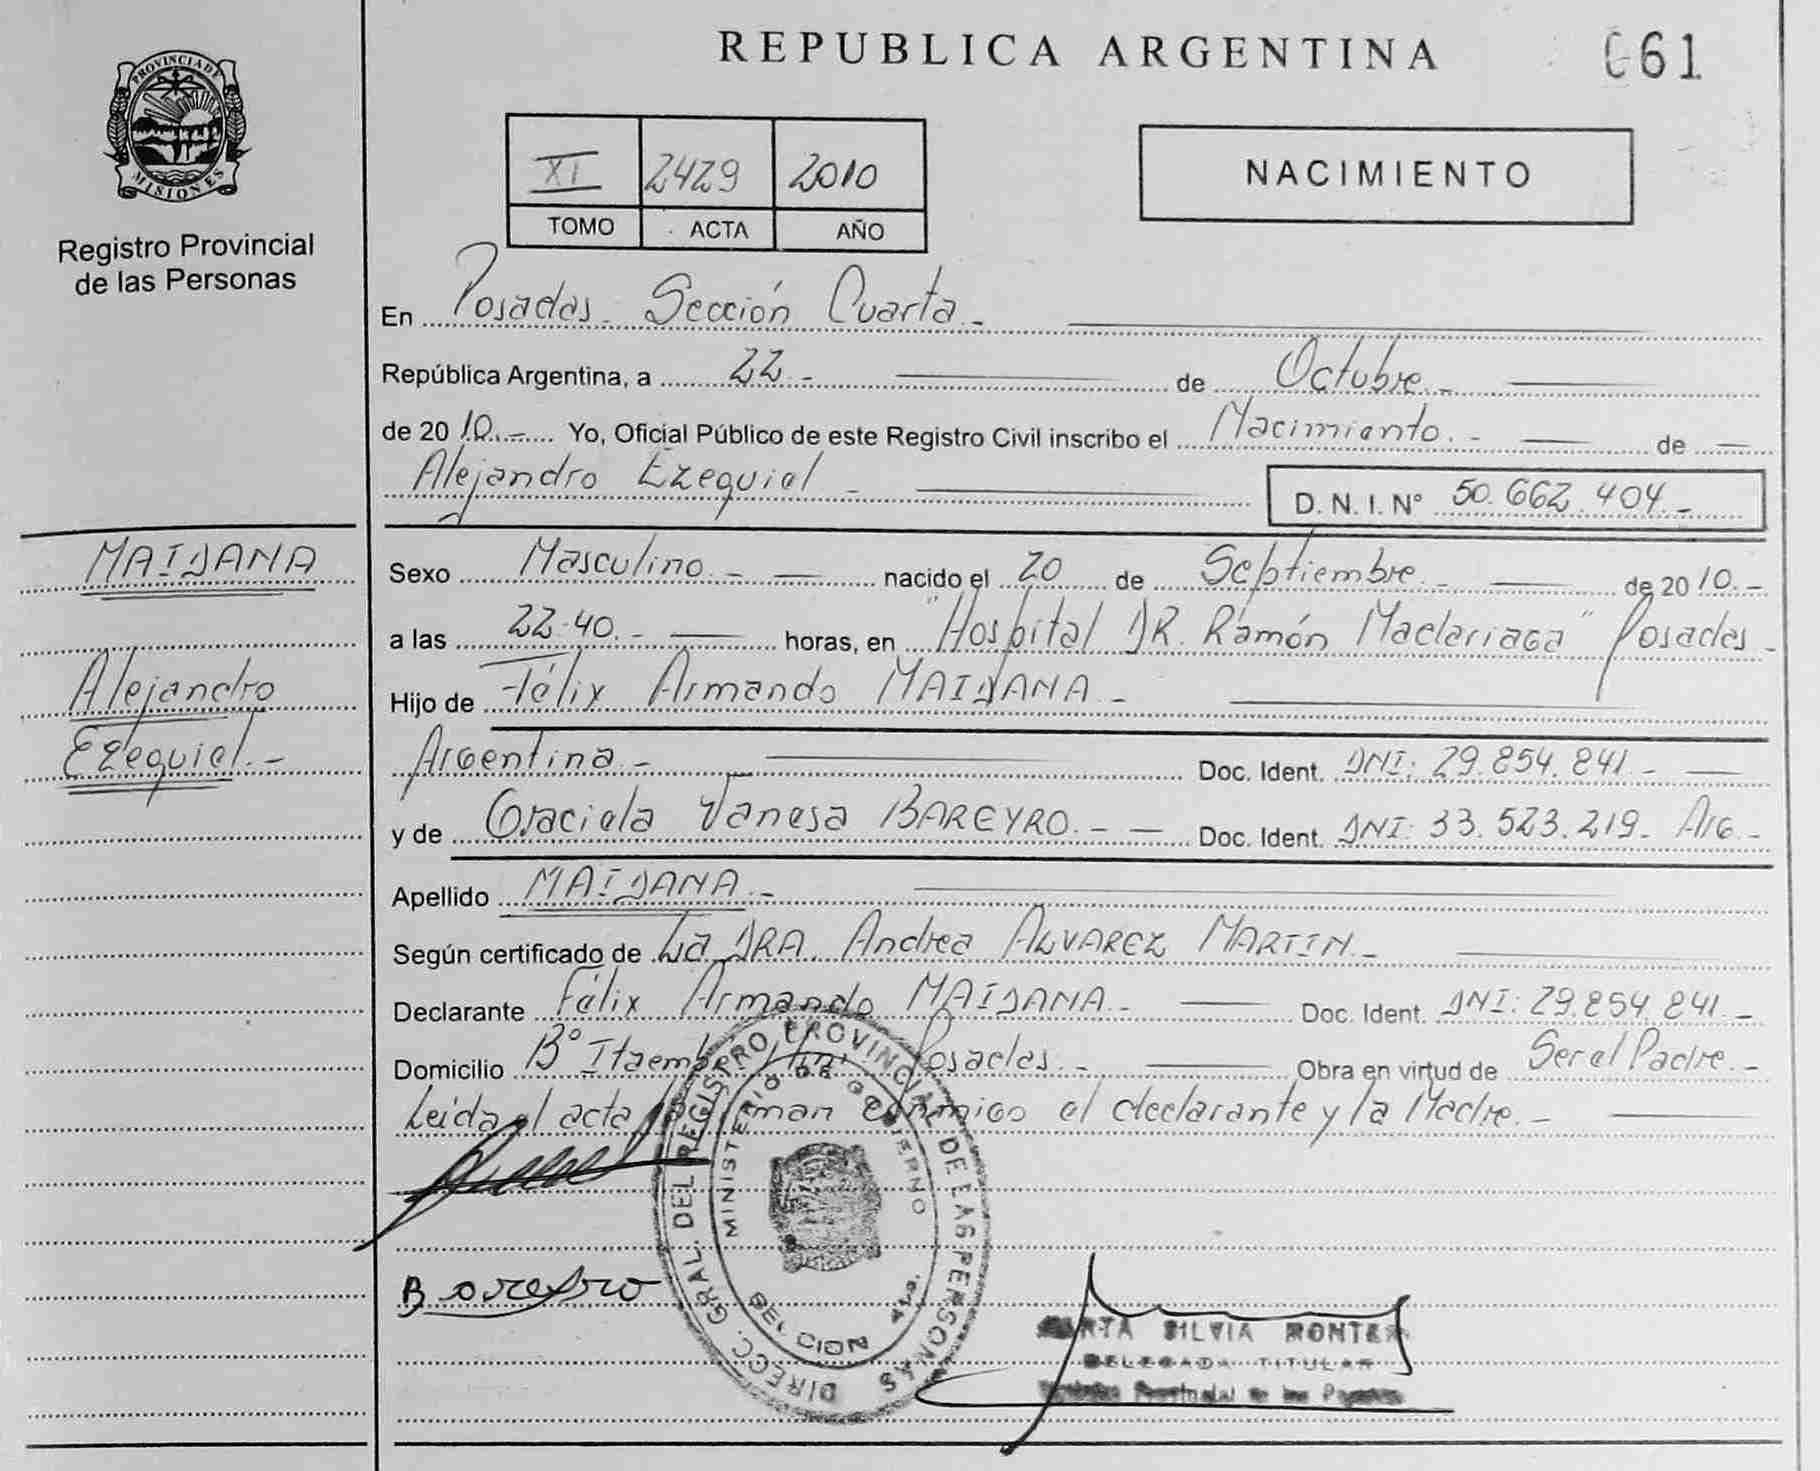 REPUBLICA ARGENTINA
061
PROVINCIA DE
MISIONES
Registro Provincial
de las Personas
XI 2429 2010
TOMO ACTA AÑO
NACIMIENTO
En Posadas - Sección Cuarta.-
República Argentina, a 22.- de Octubre.-
de 2010.- Yo, Oficial Público de este Registro Civil inscribo el Nacimiento.- de
Alejandro Ezequiel - D. N. I. Nº 50.662.404.-
MAIDANA
Alejandro
Ezequiel.-
Sexo Masculino.- nacido el 20 de Septiembre.- de 2010.-
a las 22.40.- horas, en "Hospital DR. Ramón Madariaga" Posadas-
Hijo de Félix Armando MAIDANA -
Argentina.- Doc. Ident. DNI: 29.854.841.-
y de Graciela Vanesa BAREYRO.- Doc. Ident. DNI: 33.523.219- Arg.-
Apellido MAIDANA.-
Según certificado de La DRA. Andrea ALVAREZ MARTIN.-
Declarante Félix Armando MAIDANA.- Doc. Ident. DNI: 29.854.841.-
Domicilio Bº Posadas.- Obra en virtud de Ser el Padre.-
Leida el acta firman conmigo el declarante y la Madre.-
DIRECC. GRAL. DEL REGISTRO PROVINCIAL DE LAS PERSONAS
MINISTERIO DE GOBIERNO
Bareyro
SILVIA
DELEGADA TITULAR
Provincial de las Personas